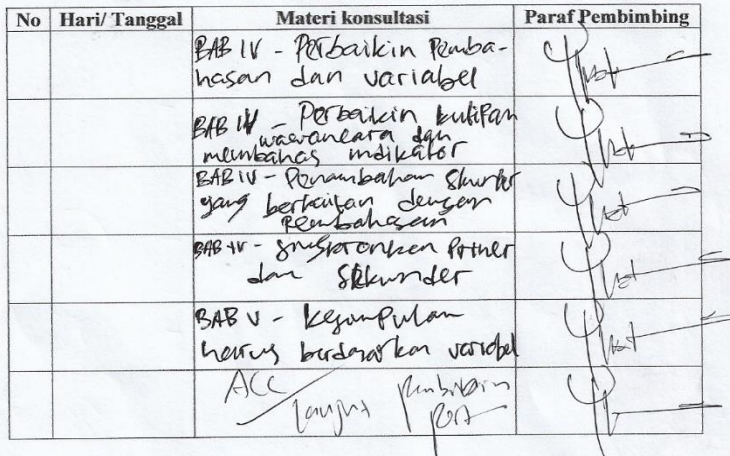 No Hari/ Tanggal Materi konsultasi Paraf Pembimbing
BAB IV - Perbaikin Pemba-
hasan dan variabel
BAB IV - Perbaikin kutipan
wawancara dan
membahas indikator
BAB IV - Penambahan Skunder
yang berkaitan dengan
Pembahasan
BAB IV - Singkronken Primer
dan Sekunder
BAB V - kesimpulan
harus berdasarkan variabel
ACC
lanjut